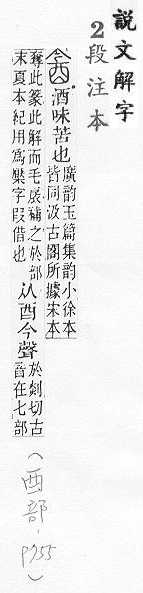 說文解字
2段注本
酓 酒味苦也
廣韵玉篇集韵小徐本
皆同汲古閣所據宋本
奪此篆此解而毛扆補之於部
末夏本紀用爲檿字叚借也
从酉今聲
於剡切古
音在七部
(酉部,p755)